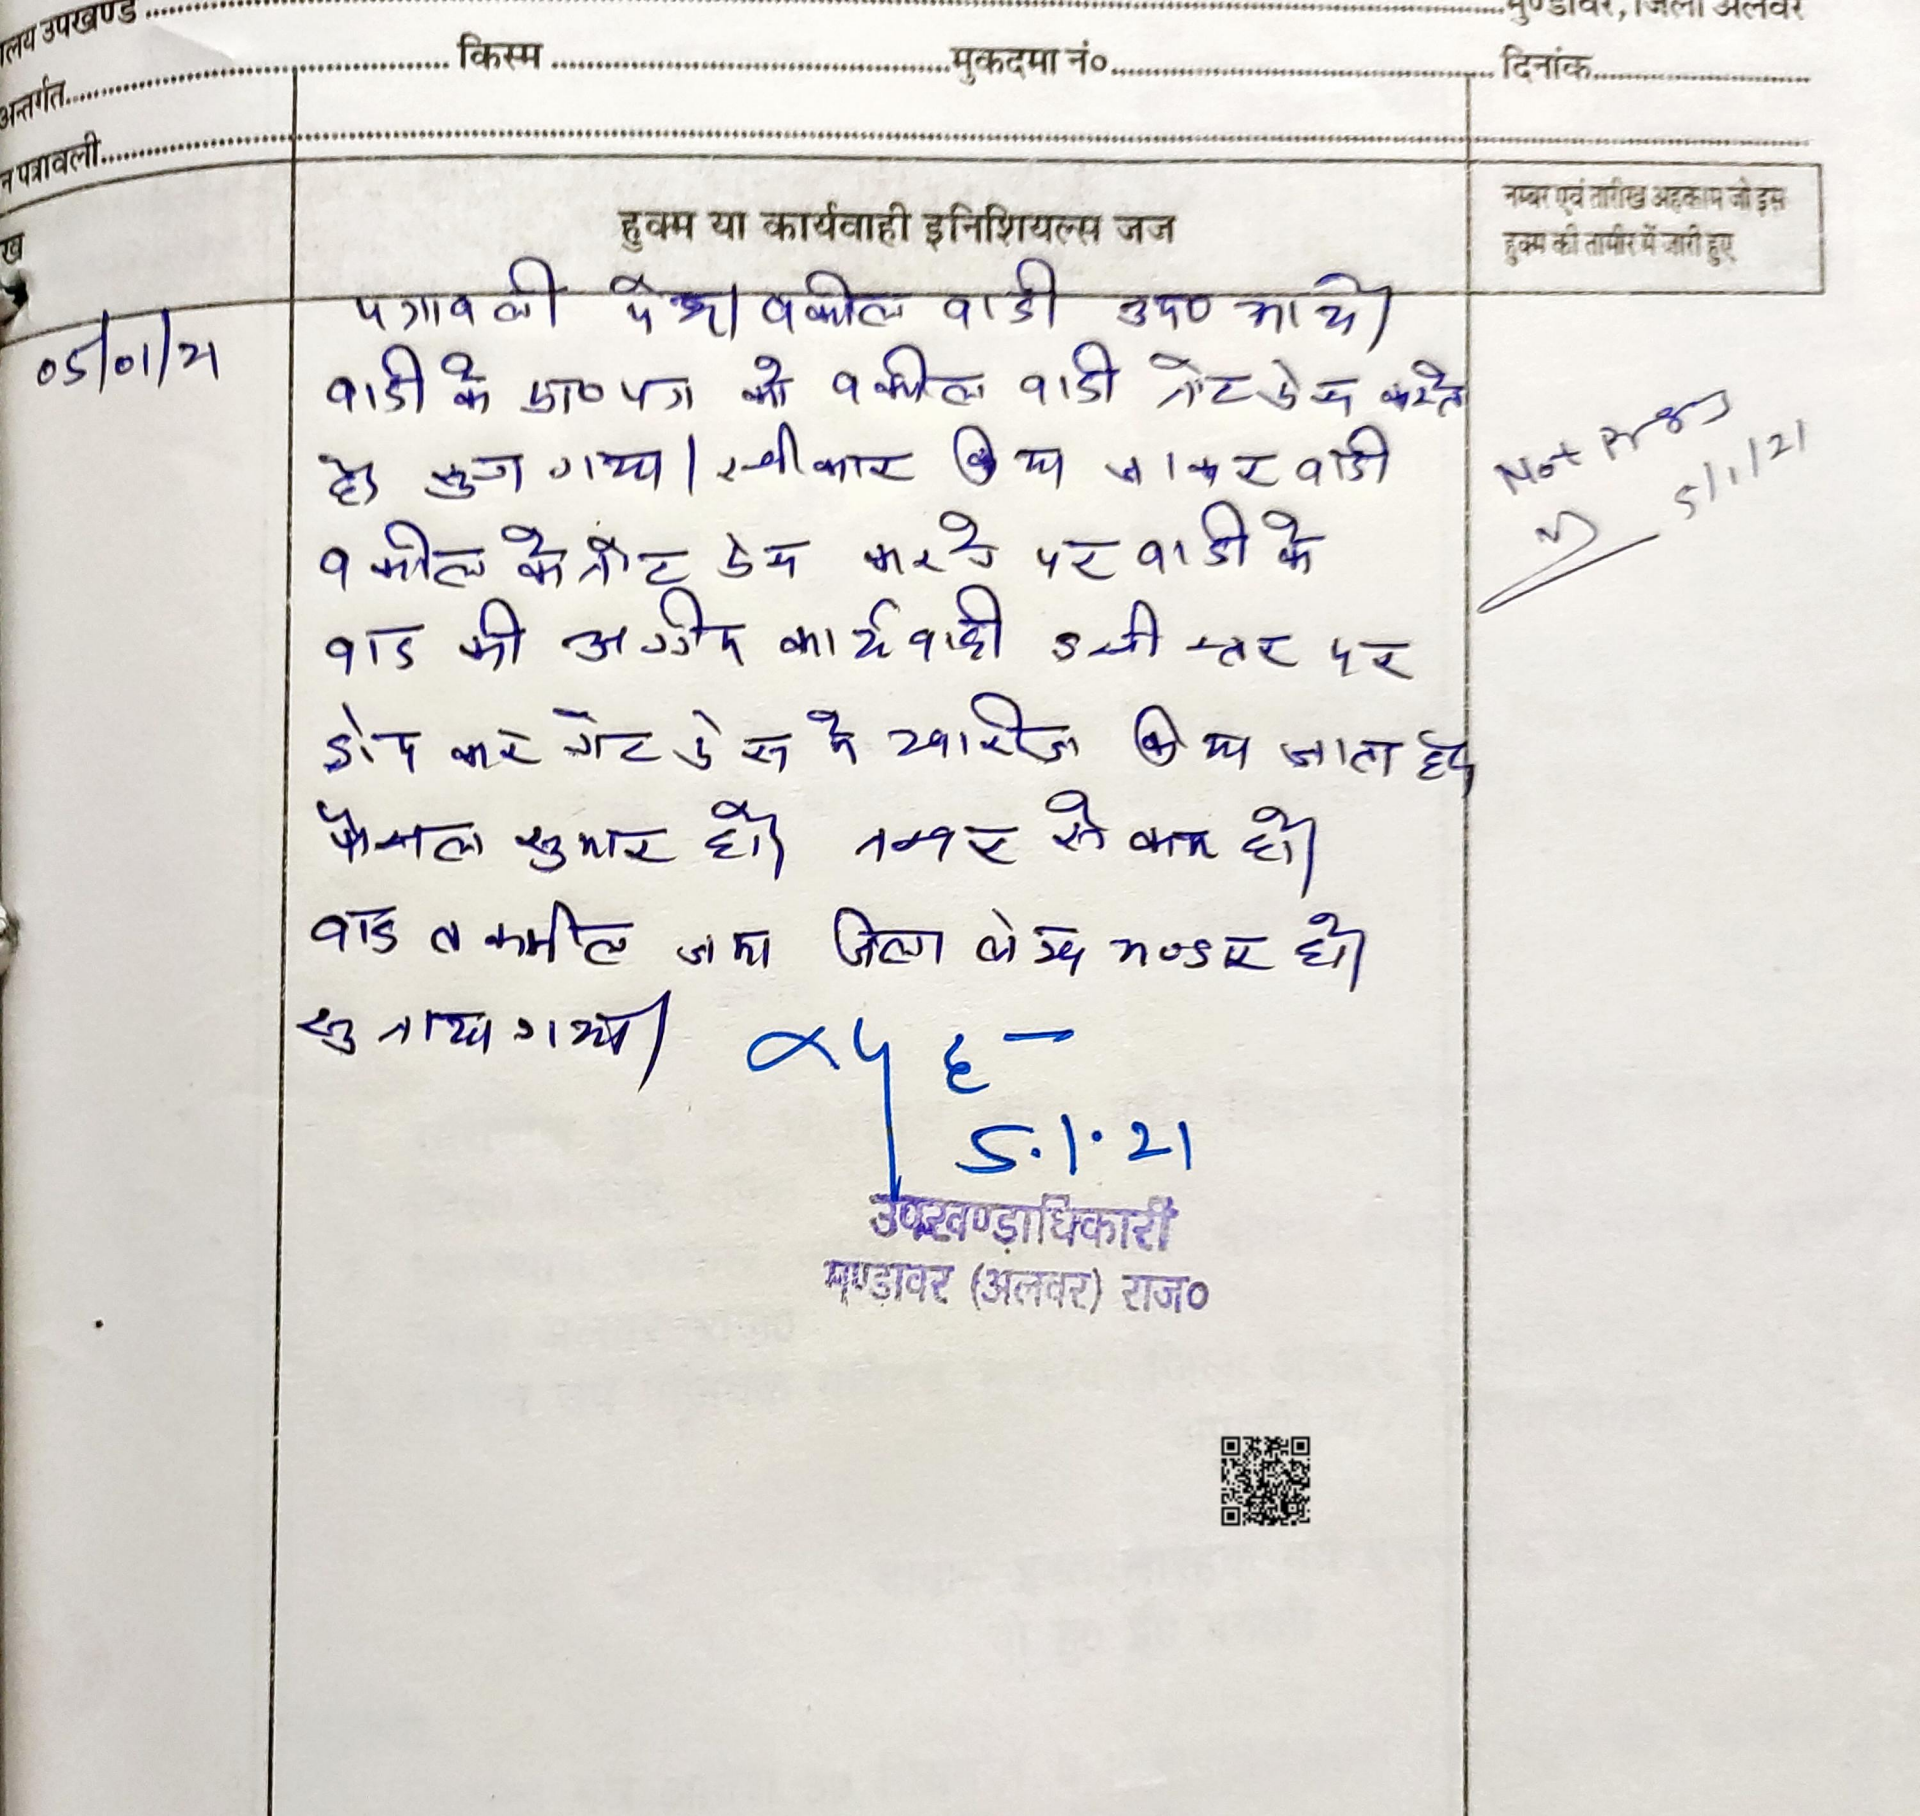 लय उपखण्ड
मुण्डावर, जिला अलवर
अन्तर्गत
किस्म
मुकदमा नं०
दिनांक
न पत्रावली
ख
हुक्म या कार्यवाही इनिशियल्स जज
नम्बर एवं तारीख अहकाम जो इस
हुक्म की तामीर में जारी हुए
05/01/21
पत्रावली पेश। वकील वादी उप० आये।
वादी के प्रा० पत्र को वकील वादी नोट प्रेस करते
है। सुना गया। स्वीकार किया जाकर वादी
वकील के नोट प्रेस करने पर वादी के
वाद की अग्रीम कार्यवाही इसी स्तर पर
ड्रोप कर नोट प्रेस में खारीज किया जाता है।
फैसल सुमार हो। नम्बर से कम हो।
वाद तकमील जमा जिला लेख भण्डार हो।
सुनाया गया।
Not Press
5/1/21
5.1.21
उपखण्ड़ाधिकारी
मुण्डावर (अलवर) राज०